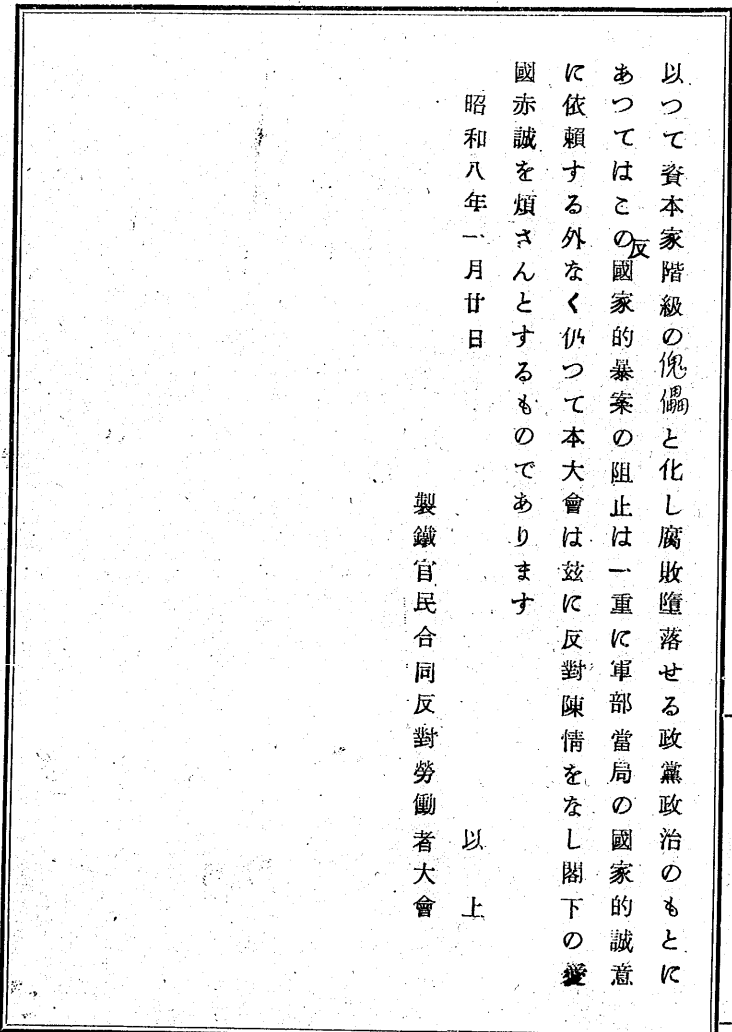 以つて資本家階級の傀儡と化し腐敗墮落せる政黨政治のもとに
あつてはこの反國家的暴案の阻止は一重に軍部當局の國家的誠意
に依賴する外なく仍つて本大會は玆に反對陳情をなし閣下の愛
國赤誠を煩さんとするものであります
昭和八年一月廿日
以上
製鐵官民合同反對勞働者大會